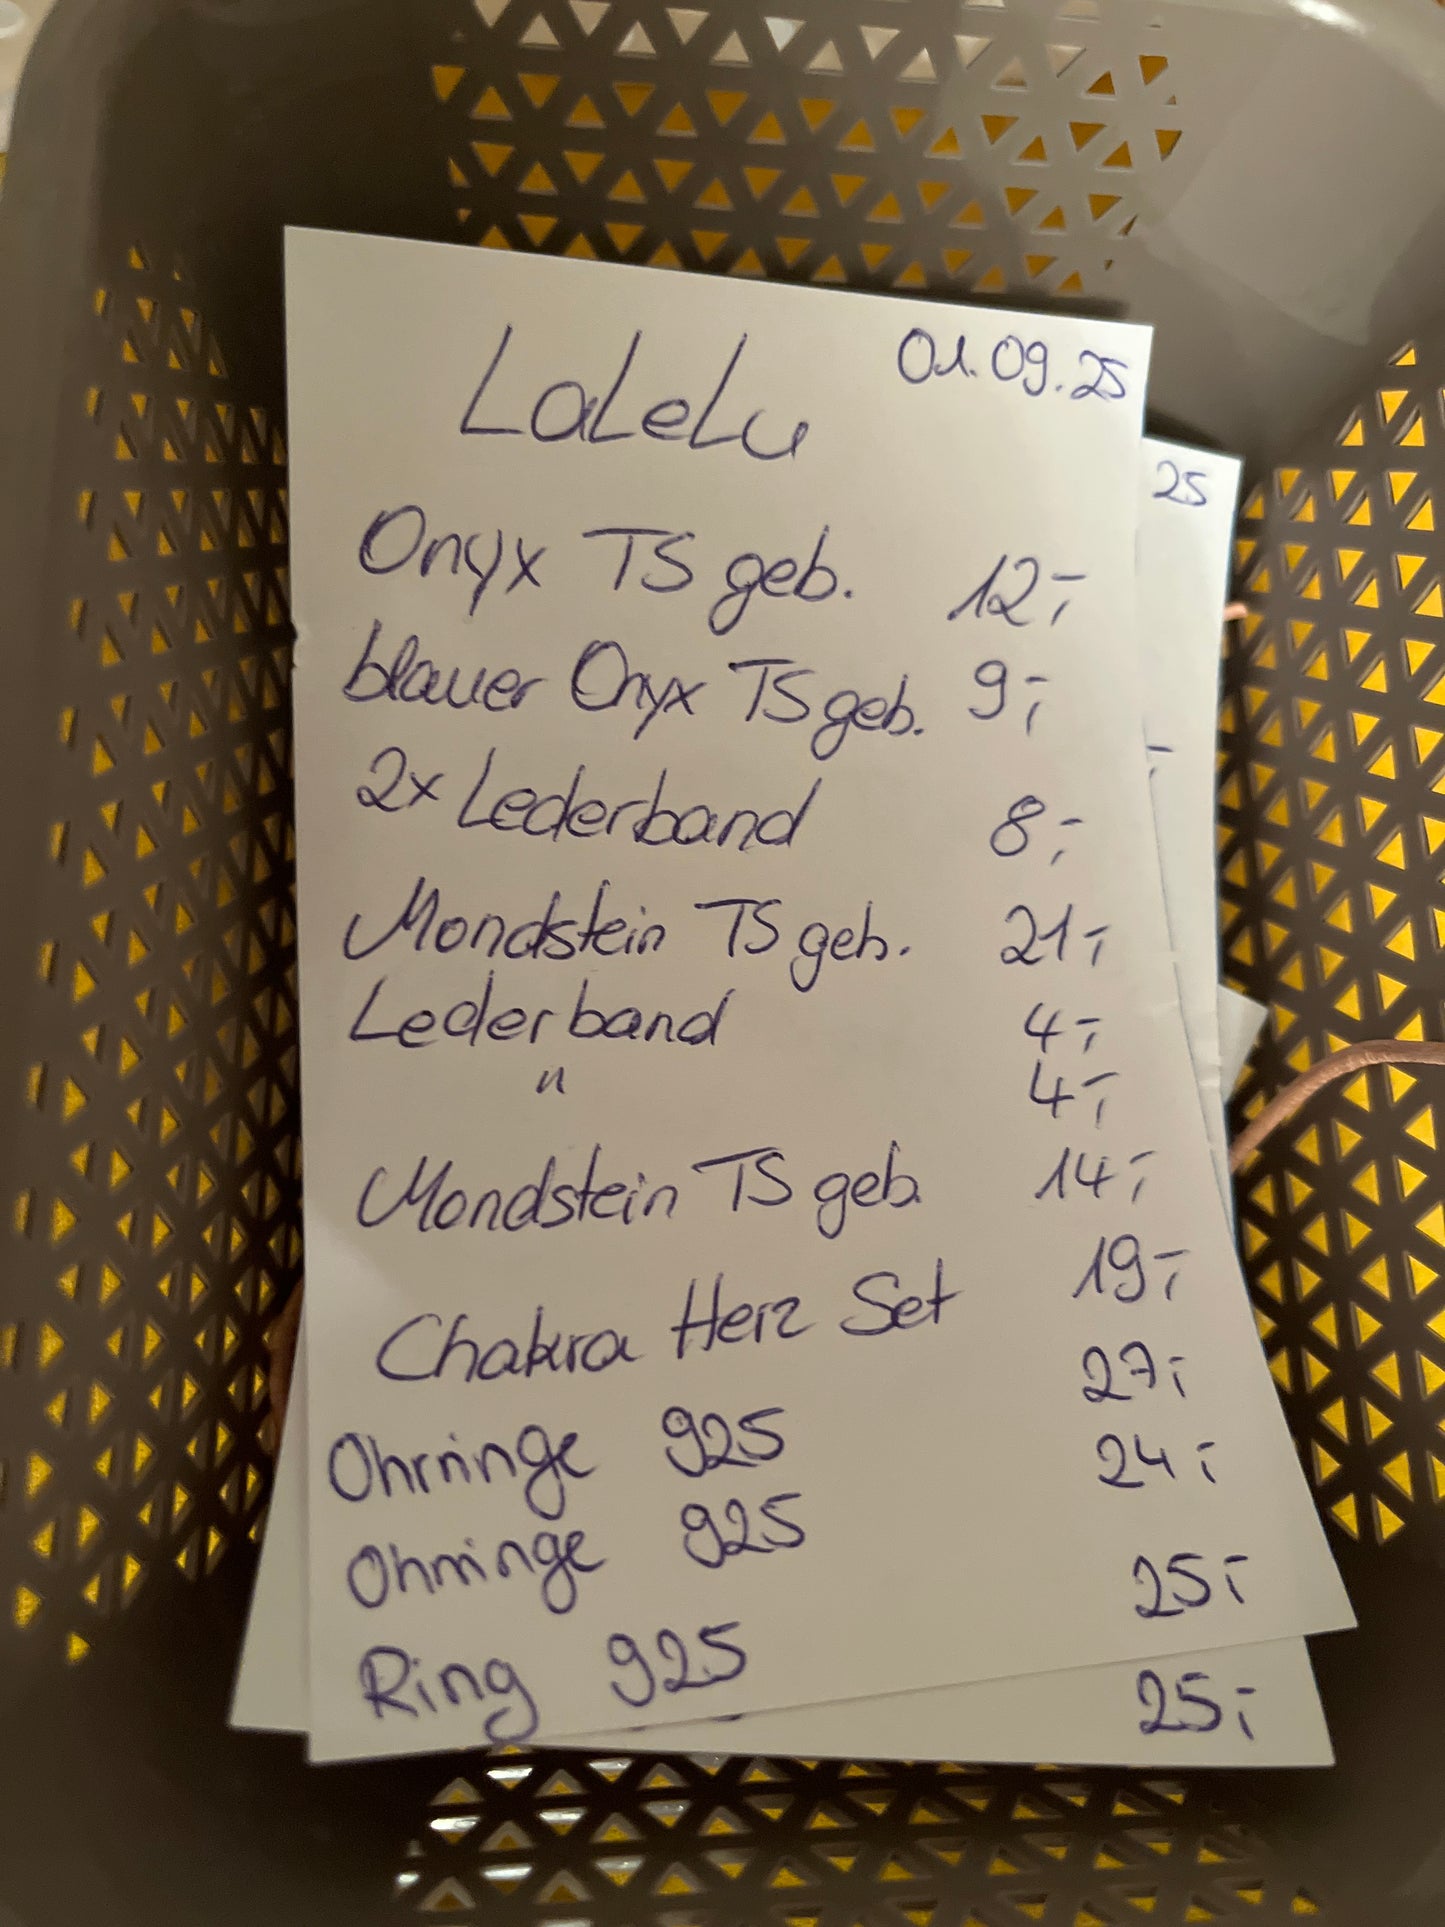 LaLeLu 01.09.25
25
Onyx TS geb. 12,-
blauer Onyx TS geb. 9,-
2x Lederband 8,-
Mondstein TS geb. 21,-
Lederband 4,-
" 4,-
Mondstein TS geb. 14,-
Chakra Herz Set 19,-
Ohrringe 925 27,-
Ohrringe 925 24,-
Ring 925 25,-
25,-